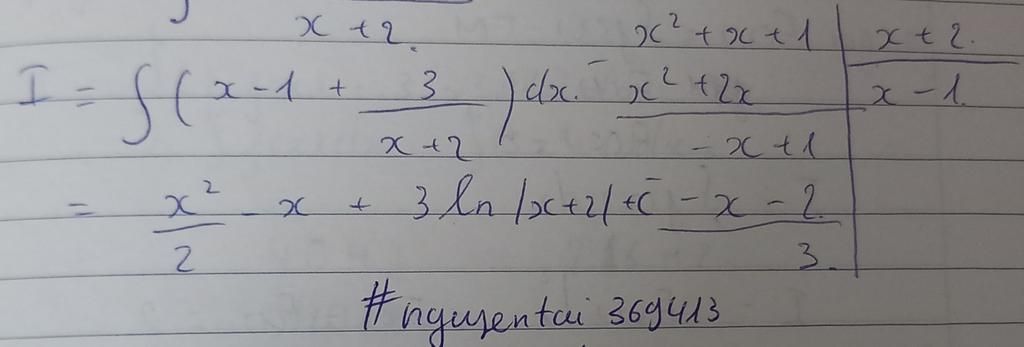 x + 2.
I = ∫ ( x - 1 + 3/(x+2) ) dx.
= x²/2 - x + 3 ln |x+2| + C
x² + x + 1 | x + 2.
- x² + 2x | x - 1.
- x + 1
- - x - 2.
3.
#nguyentai 369413